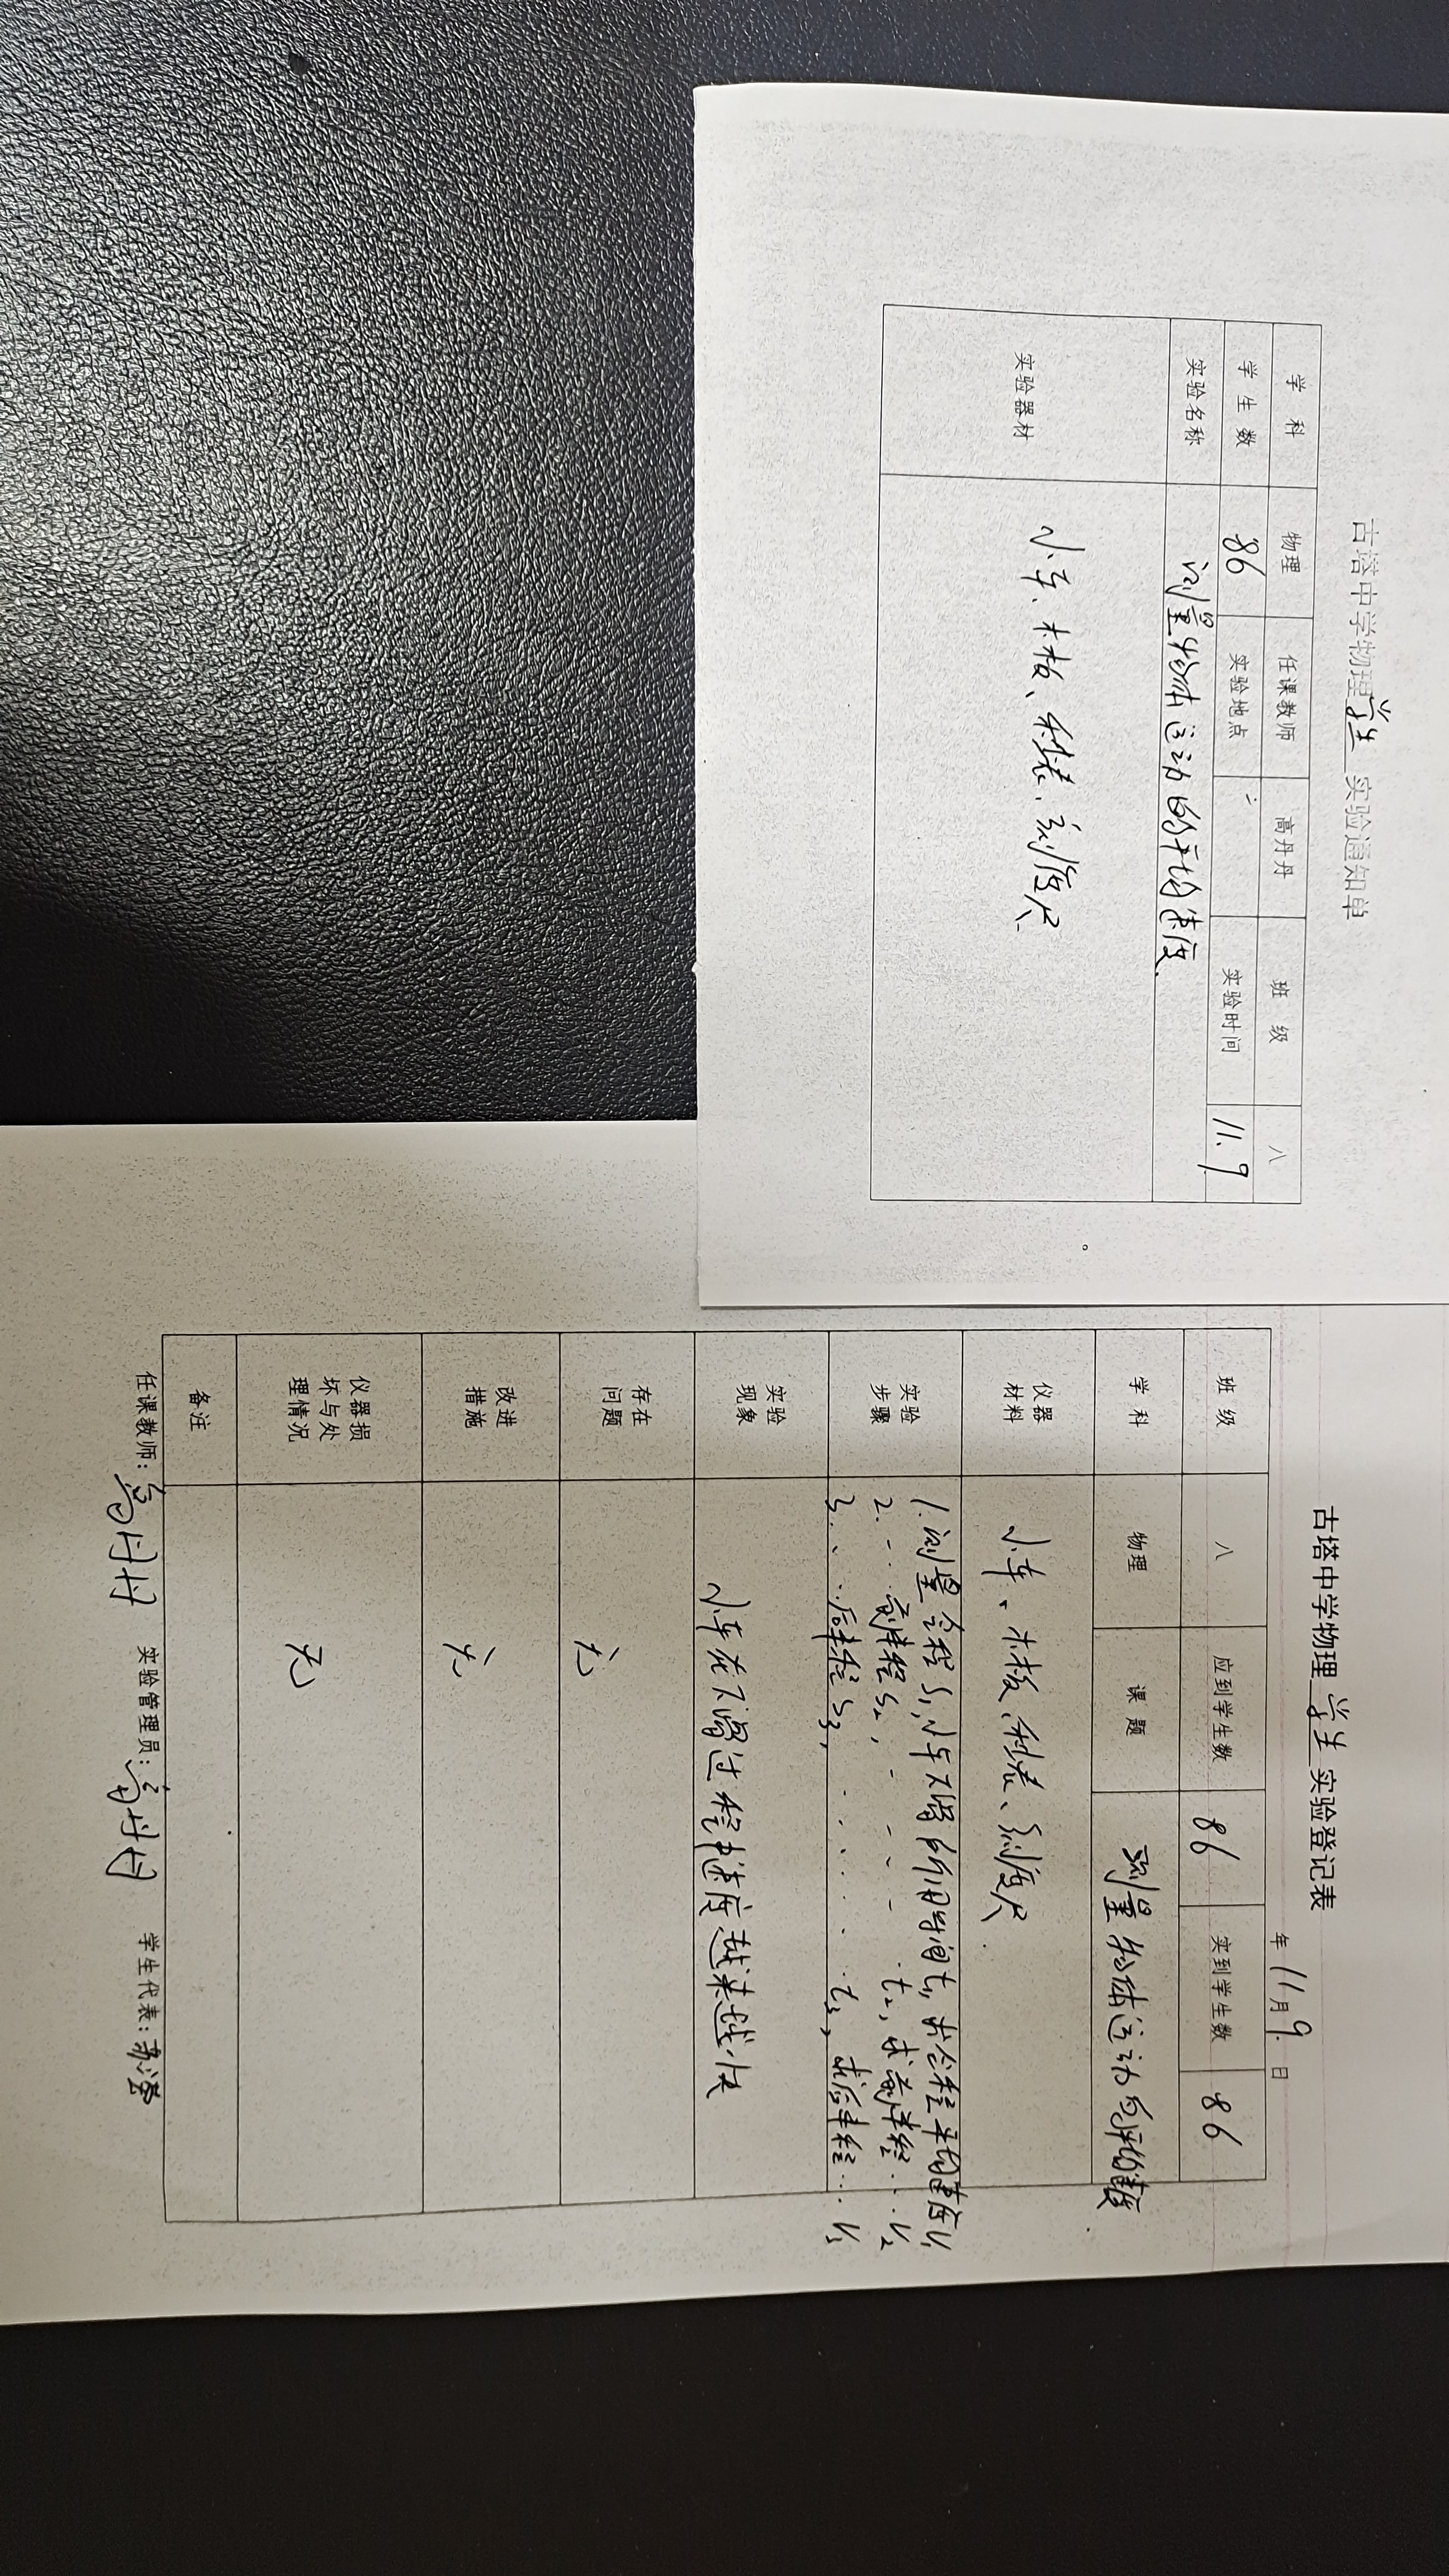 古塔中学物理学生实验通知单
学 科 物理 任课教师 高丹丹 班 级 八
学 生 数 86 实验地点 实验时间 11.9
实验名称 测量物体运动的平均速度.
实验器材 小车、木板、秒表、刻度尺.
古塔中学物理学生实验登记表
年 11月 9日
班 级 八 应到学生数 86 实到学生数 86
学 科 物理 课 题 测量物体运动的平均速度
仪器材料 小车、木板、秒表、刻度尺.
实验步骤 1.测量全程S₁,小车下滑所用时间t₁,求全程平均速度V₁
2. ... 前半程S₂, - - - - t₂,求前半程...V₂
3. ... 后半程S₃, ...... t₃,求后半程...V₃
实验现象 小车在下滑过程中速度越来越快
存在问题 无
改进措施 无
仪器损坏与处理情况 无
备注
任课教师:高丹丹 实验管理员:高丹丹 学生代表: